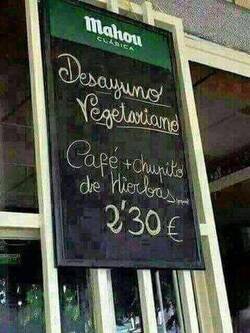 Mahou
CLÁSICA
Desayuno
Vegetariano
Café + chupito
de Hierbas
2'30 €